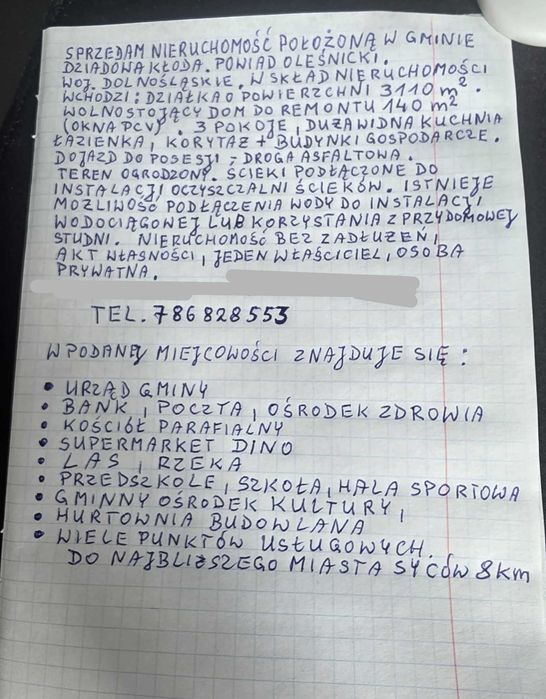 SPRZEDAM NIERUCHOMOŚĆ POŁOŻONĄ W GMINIE
DZIADOWA KŁODA. POWIAD OLEŚNICKI.
WOJ. DOLNOŚLĄSKIE. W SKŁAD NIERUCHOMOŚCI
WCHODZI: DZIAŁKA O POWIERZCHNI 3110 m².
WOLNOSTOJĄCY DOM DO REMONTU 140 m²
(OKNA PCV). 3 POKOJE, DUŻA WIDNA KUCHNIA
ŁAZIENKA, KORYTAŻ + BUDYNKI GOSPODARCZE.
DOJAZD DO POSESJI - DROGA ASFALTOWA.
TEREN OGRODZONY. ŚCIEKI PODŁĄCZONE DO
INSTALACJI OCZYSZCZALNI ŚCIEKÓW. ISTNIEJE
MOŻLIWOŚĆ PODŁĄCZENIA WODY DO INSTALACJI
WODOCIĄGOWEJ LUB KORZYSTANIA Z PRZYDOMOWEJ
STUDNI. NIERUCHOMOŚĆ BEZ ZADŁUŻEŃ,
AKT WŁASNOŚCI, JEDEN WŁAŚCICIEL, OSOBA
PRYWATNA.
TEL. 786828553
W PODANEJ MIEJCOWOŚCI ZNAJDUJE SIĘ:
• URZĄD GMINY
• BANK, POCZTA, OŚRODEK ZDROWIA
• KOŚCIÓŁ PARAFIALNY
• SUPERMARKET DINO
• LAS, RZEKA
• PRZEDSZKOLE, SZKOŁA, HALA SPORTOWA
• GMINNY OŚRODEK KULTURY,
• HURTOWNIA BUDOWLANA
• WIELE PUNKTÓW USŁUGOWYCH.
DO NAJBLIŻSZEGO MIASTA SYCÓW 8km